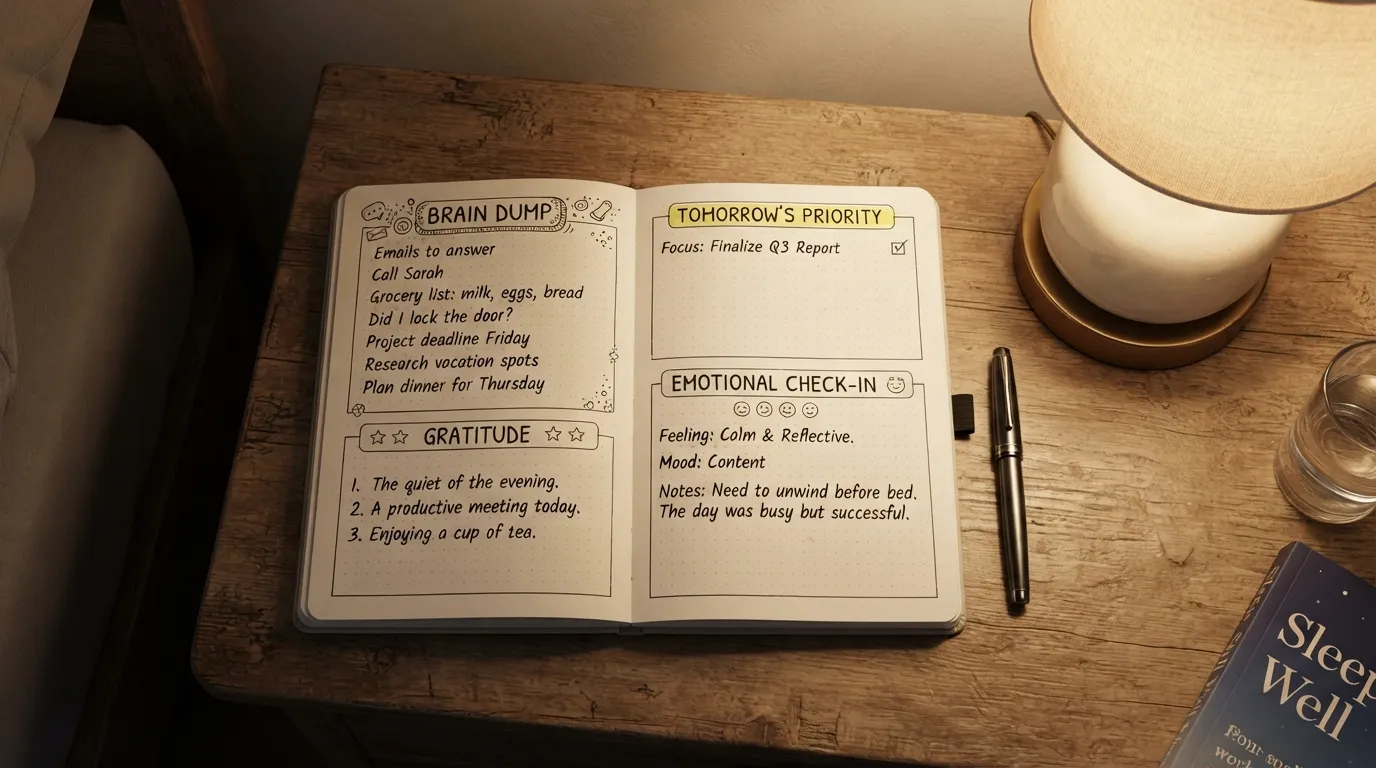 BRAIN DUMP
Emails to answer
Call Sarah
Grocery list: milk, eggs, bread
Did I lock the door?
Project deadline Friday
Research vacation spots
Plan dinner for Thursday
GRATITUDE
1. The quiet of the evening.
2. A productive meeting today.
3. Enjoying a cup of tea.
TOMORROW'S PRIORITY
Focus: Finalize Q3 Report
EMOTIONAL CHECK-IN
Feeling: Calm & Reflective.
Mood: Content
Notes: Need to unwind before bed.
The day was busy but successful.
Sleep
Well